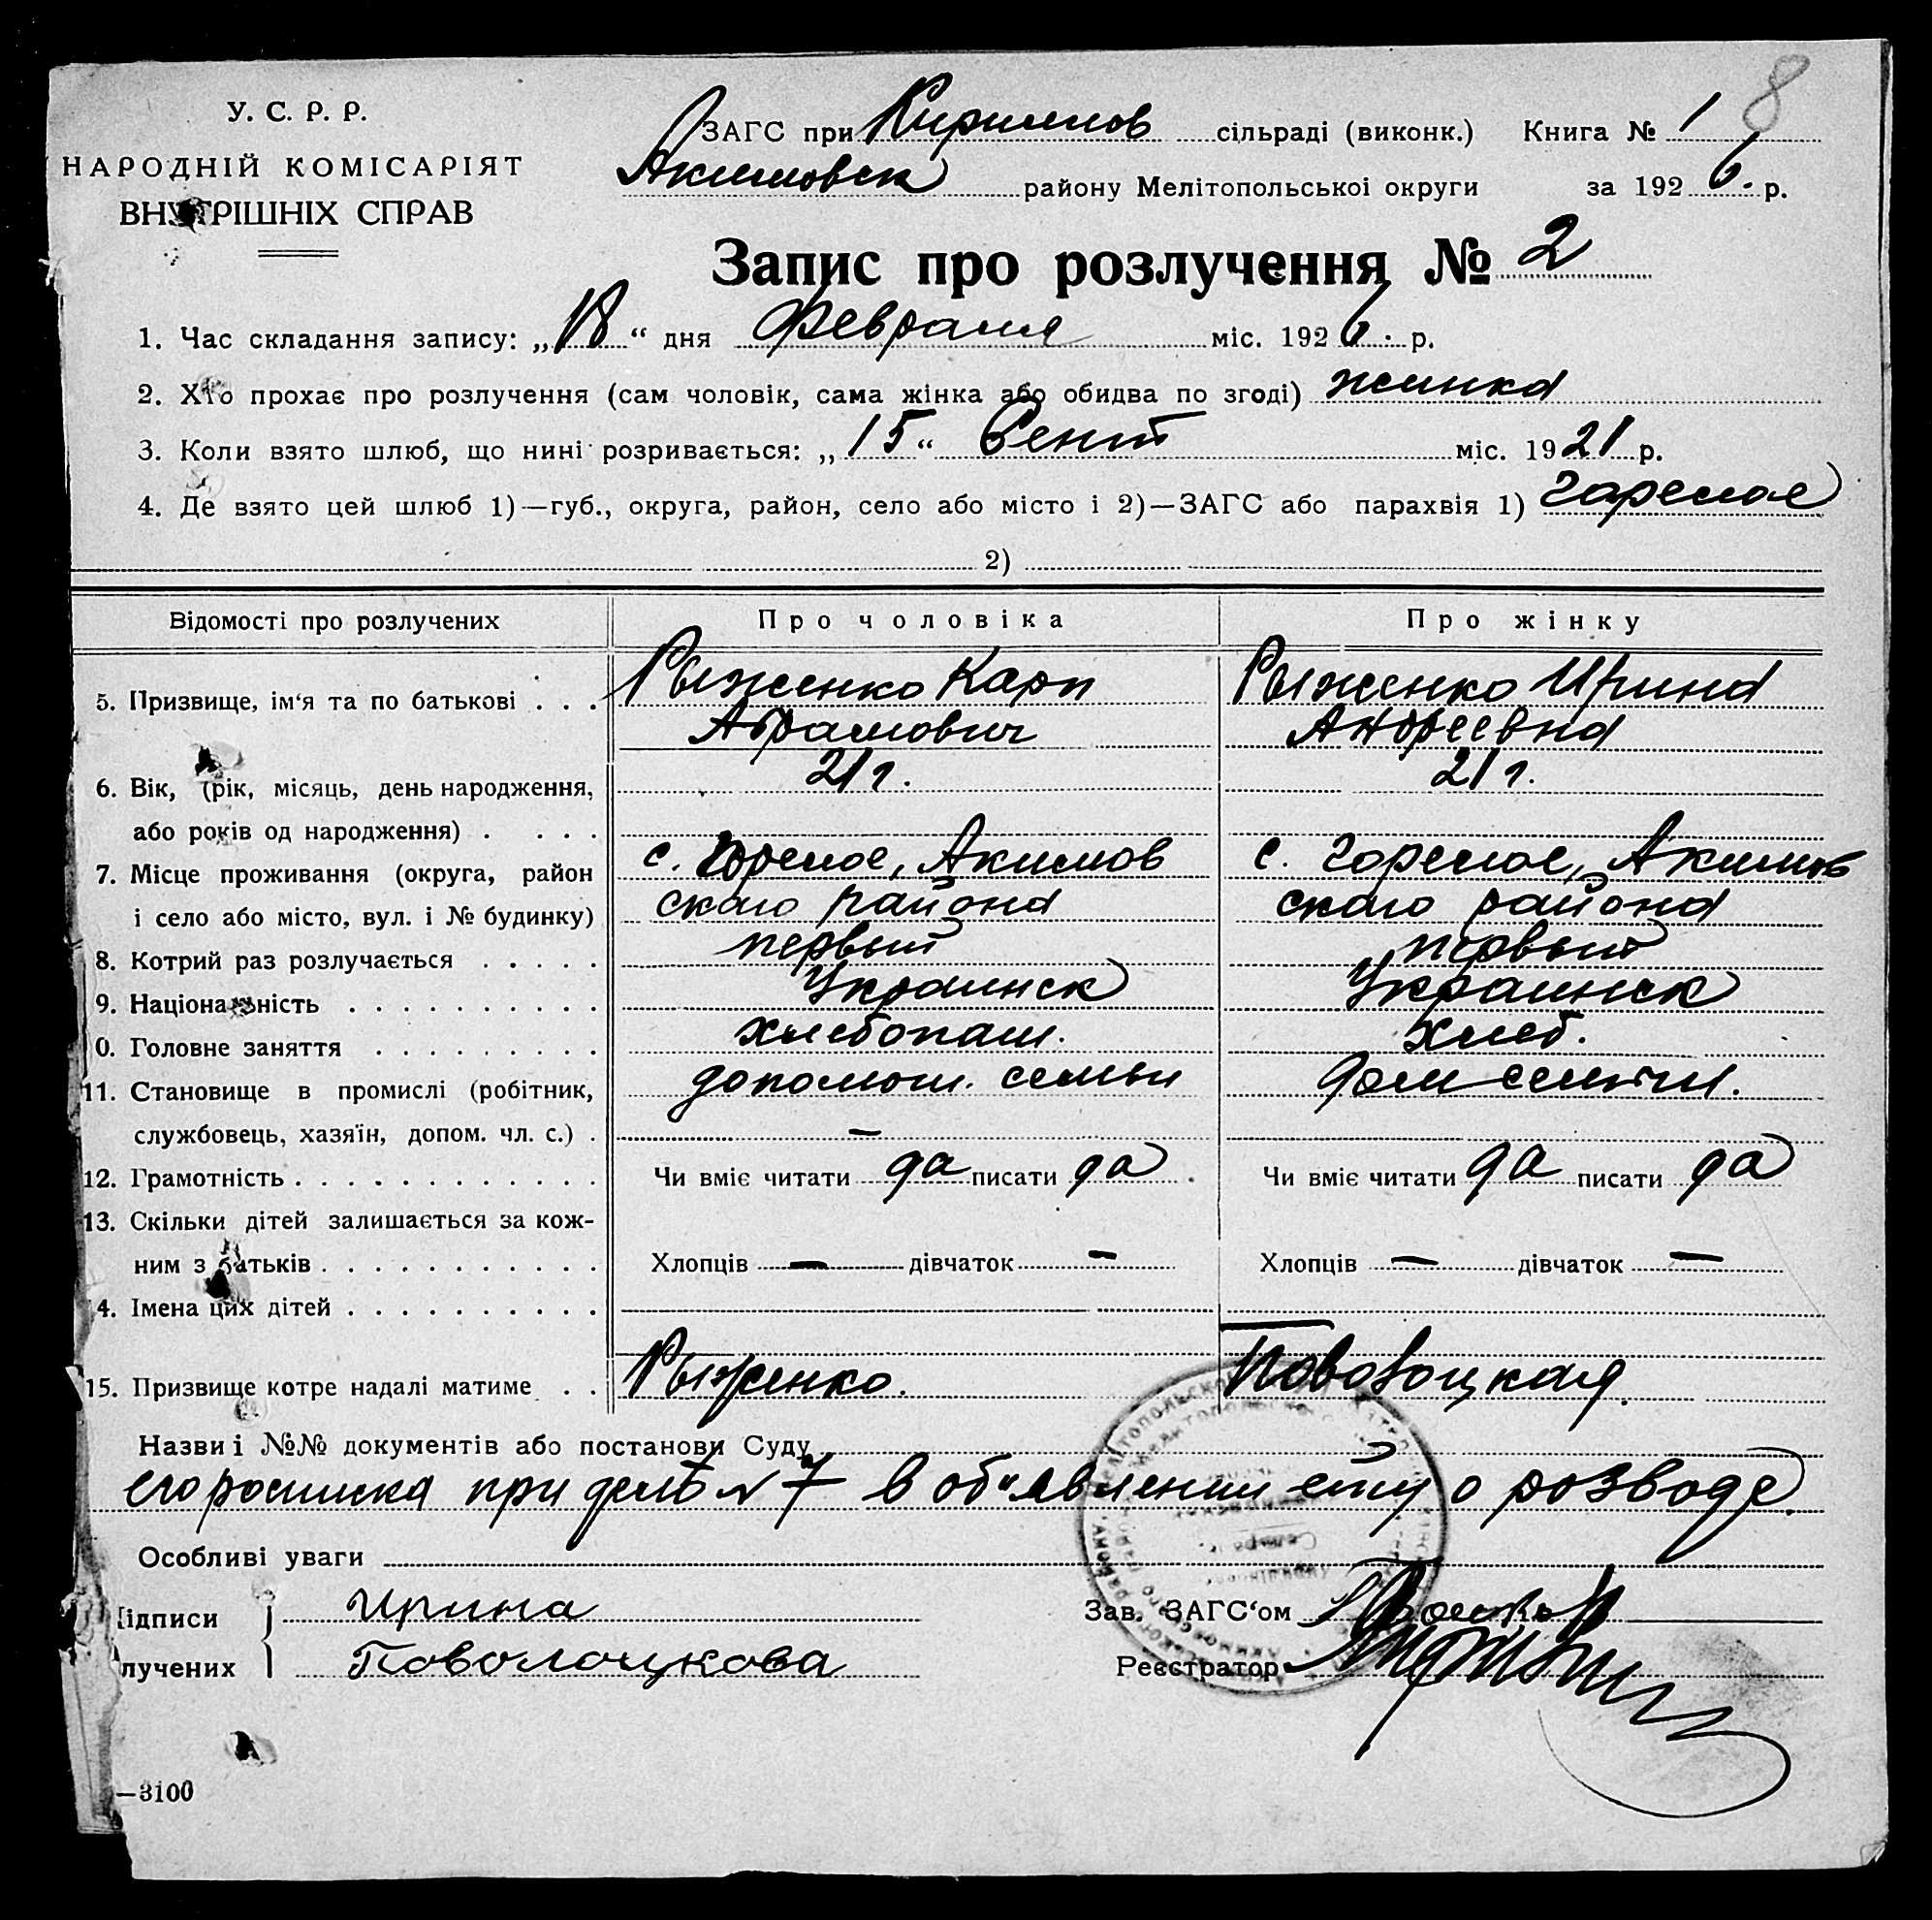 8
У. С. Р. Р.
НАРОДНІЙ КОМІСАРІЯТ
ВНУТРІШНІХ СПРАВ
ЗАГС при Кирилов сільраді (виконк.) Книга № 1
Акимовск району Мелітопольської округи за 1926. р.
Запис про розлучення № 2
1. Час складання запису: „18“ дня Февраля міс. 1926. р.
2. Хто прохає про розлучення (сам чоловік, сама жінка або обидва по згоді) жинка
3. Коли взято шлюб, що нині розривається: „15“ Сент міс. 1921 р.
4. Де взято цей шлюб 1)—губ., округа, район, село або місто і 2)—ЗАГС або парахвія 1) Горелое
2)
Відомості про розлучених Про чоловіка Про жінку
5. Призвище, ім'я та по батькові . . . Рыженко Карп Рыженко Ирина
Абрамович Андреевна
21 г. 21 г.
6. Вік, (рік, місяць, день народження,
або років од народження) . . . .
с. Горелое, Акимов с. Горелое, Акимов
7. Місце проживання (округа, район
і село або місто, вул. і № будинку) скаго района скаго района
8. Котрий раз розлучається . . . . . первый первый
9. Національність . . . . . . . . . . Украинск Украинск
0. Головне заняття . . . . . . . . . хлебопаш. хлеб.
11. Становище в промислі (робітник, допомош. семьи дом
службовець, хазяїн, допом. чл. с.) . —
12. Грамотність . . . . . . . . . . . . Чи вміє читати да писати да . Чи вміє читати да писати да
13. Скільки дітей залишається за кож-
ним з батьків . . . . . . . . . . . Хлопців — дівчаток — Хлопців — дівчаток —
4. Імена цих дітей . . . . . . . . . .
15. Призвище котре надалі матиме . . Рыженко. Поволоцкая.
Назви і №№ документів або постанови Суду
его росписка при деле № 7 в об'явлении ему о розводе.
Особливі уваги
ідписи Ирина Зав. ЗАГС'ом
лучених Поволоцкова Реєстратор
—3100